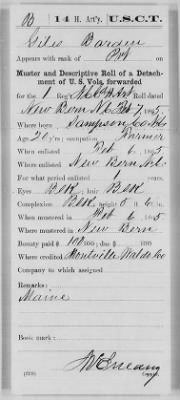 B | 14 H. Art'y. | U.S.C.T.
Giles Barden
Appears with rank of Pvt on
Muster and Descriptive Roll of a Detachment
of U. S. Vols. forwarded
for the 1 Reg't Roll dated
New Bern N.C. Feb 7, 1865.
Where born Sampson Co. N.C.
Age 21 y'rs; occupation Farmer
When enlisted Feb 6, 1865
Where enlisted New Bern N.C.
For what period enlisted 1 years.
Eyes Blk; hair Blk
Complexion Blk; height 5 ft. 6 in.
When mustered in Feb 6, 1865
Where mustered in New Bern
Bounty paid $ 100; due $ 100
Where credited Montville Waldo Co
Company to which assigned
Remarks:
Maine
Book mark:
Copyist.